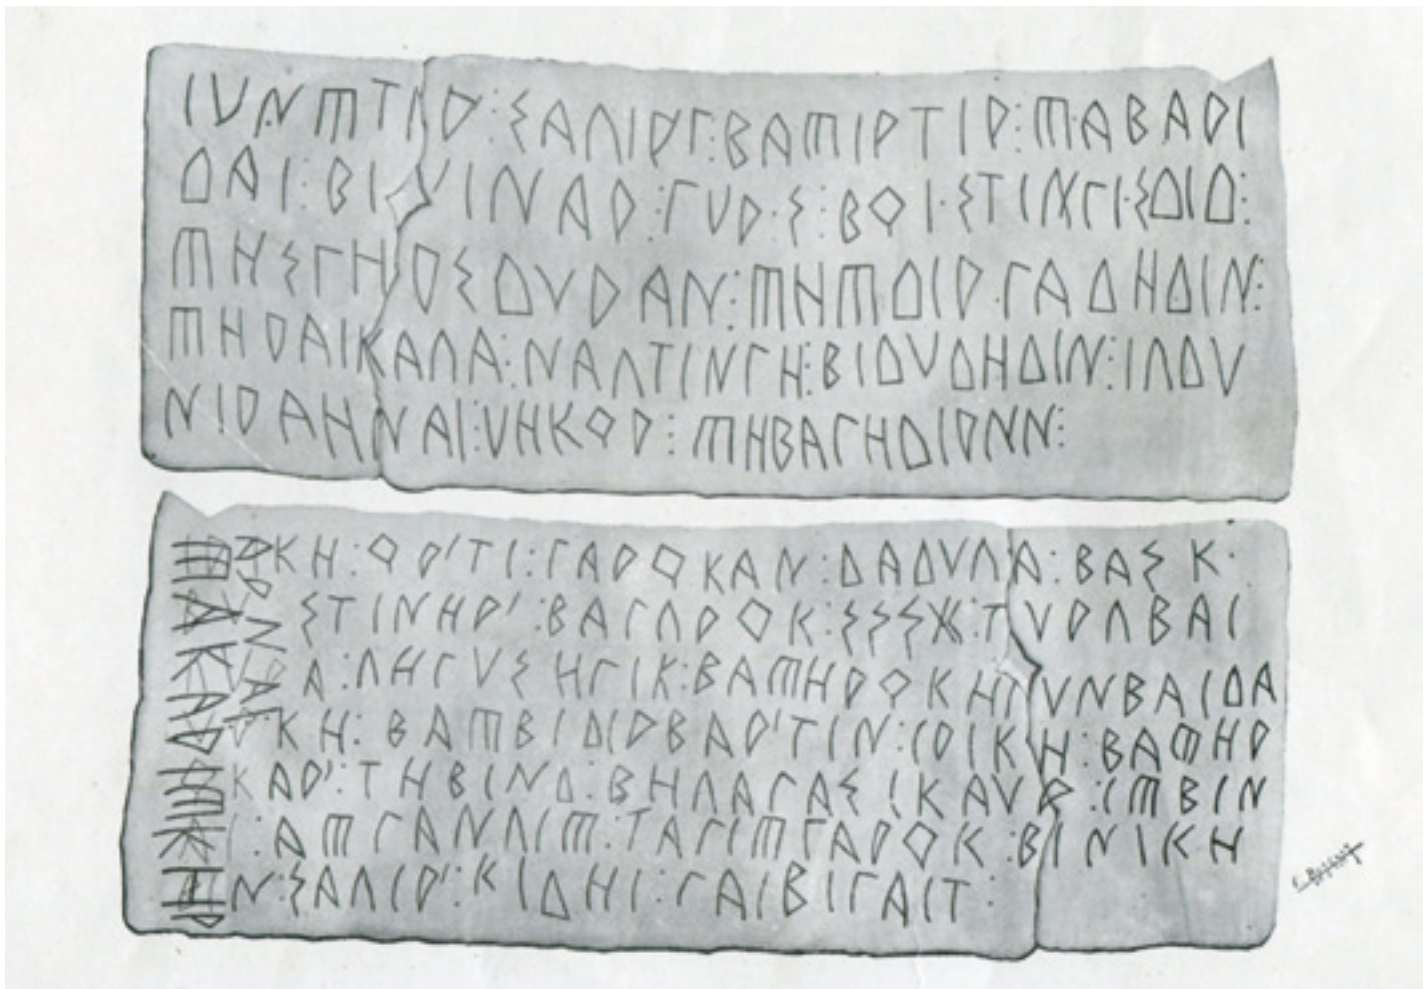 ΙΥΝͲΤΙΡ̓:ΣΑΛΙΡΓ:ΒΑͲΙΡΤΙΡ:ͲΑΒΑΡΙ
ΔΑΙ:ΒΙΡ̓ΙΝΑΡ:ΓΥΡΣ:ΒΟΙΣΤΙΝΓΙΣΔΙΔ:
ͲΗΣΓΗΡΣΔΥΡΑΝ:ͲΗͲΔΙΡΓΑΔΗΔΙΝ:
ͲΗΡΑΙΚΑΛΑ:ΝΑΛΤΙΝΓΗ:ΒΙΔΥΔΗΔΙΝ:ΙΛΔΥ
ΝΙΡΑΗΝΑΙ:ΥΗΚΟΡ:ͲΗΒΑΓΗΔΙΡΝΝ:
ΚΗ:ΟΡ̓ΤΙ:ΓΑΡΟΚΑΝ:ΔΑΔΥΛΑ:ΒΑΣΚ:
ΣΤΙΝΗΡ̓:ΒΑΓΑΡΟΚ:ΣΣΣΧ:ΤΥΡΛΒΑΙ
Α:ΛΗΓΥΣΗΓΙΚ:ΒΑͲΗΡΟΚΗΙΥΝΒΑΙΔΑ
ΚΗ:ΒΑͲΒΙΔΙΡΒΑΡ̓ΤΙΝ:ΙΡΙΚΗ:ΒΑͲΗΡ
ΚΑΡ̓:ΤΗΒΙΝΔ:ΒΗΛΑΓΑΣΙΚΑΥΡ:ΙͲΒΙΝ
Ι:ΑͲΓΑΝΛΙͲ:ΤΑΓΙͲΓΑΡΟΚ:ΒΙΝΙΚΗ
ΙΝ:ΣΑΛΙΡ̓:ΚΙΔΗΙ:ΓΑΙΒΙΓΑΙΤ:
ͲΑΚΑΡΙͲΚΗΡ